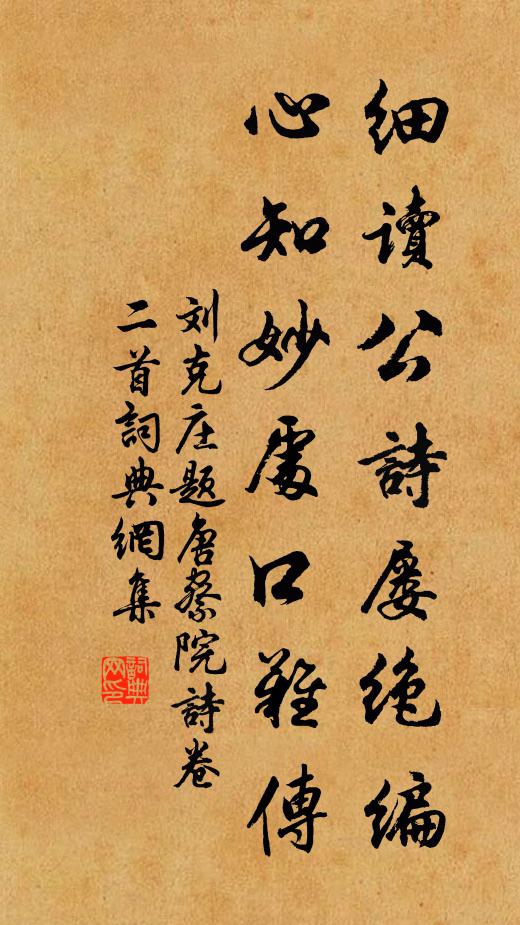 细讀公詩屡绝编
心知妙處口難傳
刘克庄题唐察院詩卷
二首詞典網集
詞典网印